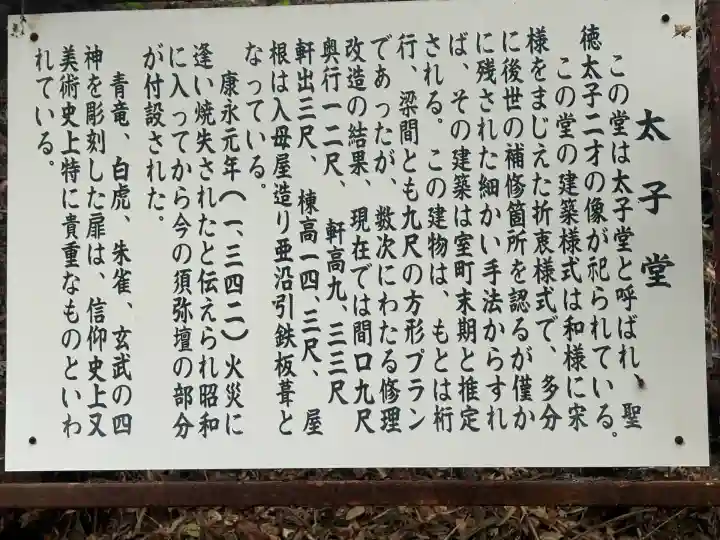 太子堂
この堂は太子堂と呼ばれ、聖
徳太子二才の像が祀られている。
この堂の建築様式は和様に宋
様をまじえた折衷様式で、多分
に後世の補修箇所を認るが僅か
に残された細かい手法からすれ
ば、その建築は室町末期と推定
される。この建物は、もとは桁
行、梁間とも九尺の方形プラン
であったが、数次にわたる修理
改造の結果、現在では間口九尺
奥行一二尺、軒高九、三三尺
軒出三尺、棟高一四、三尺、屋
根は入母屋造り亜沿引鉄板葺と
なっている。
康永元年(一、三四二)火災に
逢い焼失されたと伝えられ昭和
に入ってから今の須弥壇の部分
が付設された。
青竜、白虎、朱雀、玄武の四
神を彫刻した扉は、信仰史上又
美術史上特に貴重なものといわ
れている。